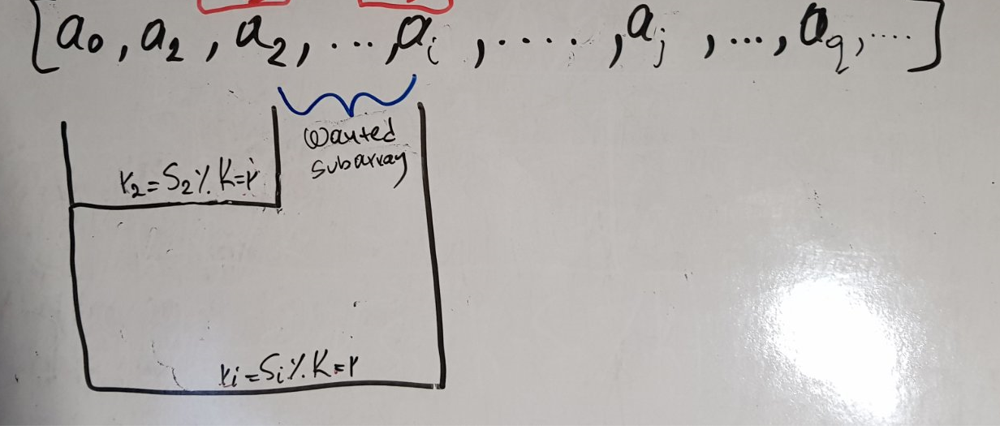 [a₀, a₂, a₂, ..., aᵢ, ...., aⱼ, ..., a_q, ....]
Wanted
subarray
r₂=S₂%K=r
rᵢ=Sᵢ%K=r